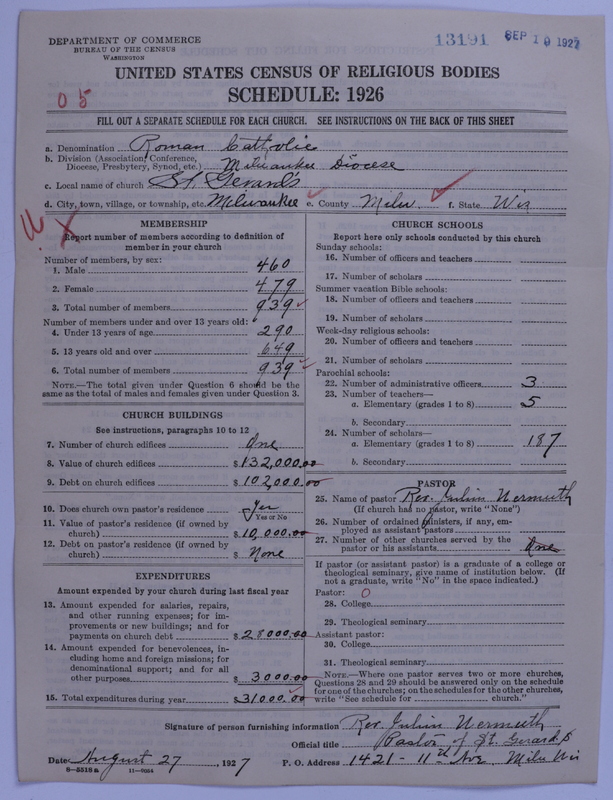 DEPARTMENT OF COMMERCE
BUREAU OF THE CENSUS
WASHINGTON
13191 SEP 10 1927
UNITED STATES CENSUS OF RELIGIOUS BODIES
SCHEDULE: 1926
05
FILL OUT A SEPARATE SCHEDULE FOR EACH CHURCH. SEE INSTRUCTIONS ON THE BACK OF THIS SHEET
a. Denomination Roman Catholic
b. Division (Association, Conference, Diocese, Presbytery, Synod, etc.) Milwaukee Diocese
c. Local name of church St. Gerard's
d. City, town, village, or township, etc. Milwaukee e. County Milw f. State Wis
MEMBERSHIP
Report number of members according to definition of
member in your church
Number of members, by sex:
1. Male 460
2. Female 479
3. Total number of members 939
Number of members under and over 13 years old:
4. Under 13 years of age 290
5. 13 years old and over 649
6. Total number of members 939
NOTE.—The total given under Question 6 should be
same as the total of males and females given under Question 3.
CHURCH BUILDINGS
See instructions, paragraphs 10 to 12
7. Number of church edifices One
8. Value of church edifices $132,000.00
9. Debt on church edifices $102,000.00
10. Does church own pastor's residence Yes
Yes or No
11. Value of pastor's residence (if owned by
church) $10,000.00
12. Debt on pastor's residence (if owned by
church) $ None
EXPENDITURES
Amount expended by your church during last fiscal year
13. Amount expended for salaries, repairs,
and other running expenses; for im-
provements or new buildings; and for
payments on church debt $28000.00
14. Amount expended for benevolences, in-
cluding home and foreign missions; for
denominational support; and for all
other purposes $3000.00
15. Total expenditures during year $31000.00
CHURCH SCHOOLS
Report here only schools conducted by this church
Sunday schools:
16. Number of officers and teachers
17. Number of scholars
Summer vacation Bible schools:
18. Number of officers and teachers
19. Number of scholars
Week-day religious schools:
20. Number of officers and teachers
21. Number of scholars
Parochial schools:
22. Number of administrative officers 3
23. Number of teachers—
a. Elementary (grades 1 to 8) 5
b. Secondary
24. Number of scholars—
a. Elementary (grades 1 to 8) 187
b. Secondary
PASTOR
25. Name of pastor Rev. Julius Nermuth
(If church has no pastor, write "None")
26. Number of ordained ministers, if any, em-
ployed as assistant pastors
27. Number of other churches served by the
pastor or his assistants One
If pastor (or assistant pastor) is a graduate of a college or
theological seminary, give name of institution below. (If
not a graduate, write "No" in the space indicated.)
Pastor: 0
28. College
29. Theological seminary
Assistant pastor:
30. College
31. Theological seminary
NOTE.—Where one pastor serves two or more churches,
Questions 28 and 29 should be answered only on the schedule
for one of the churches; on the schedules for the other churches,
write "See schedule for church."
Signature of person furnishing information Rev. Julius Nermuth
Official title Pastor of St. Gerard's
Date August 27, 1927 P. O. Address 1421 - 11th Ave Milw Wis
8—5518a 11—9034